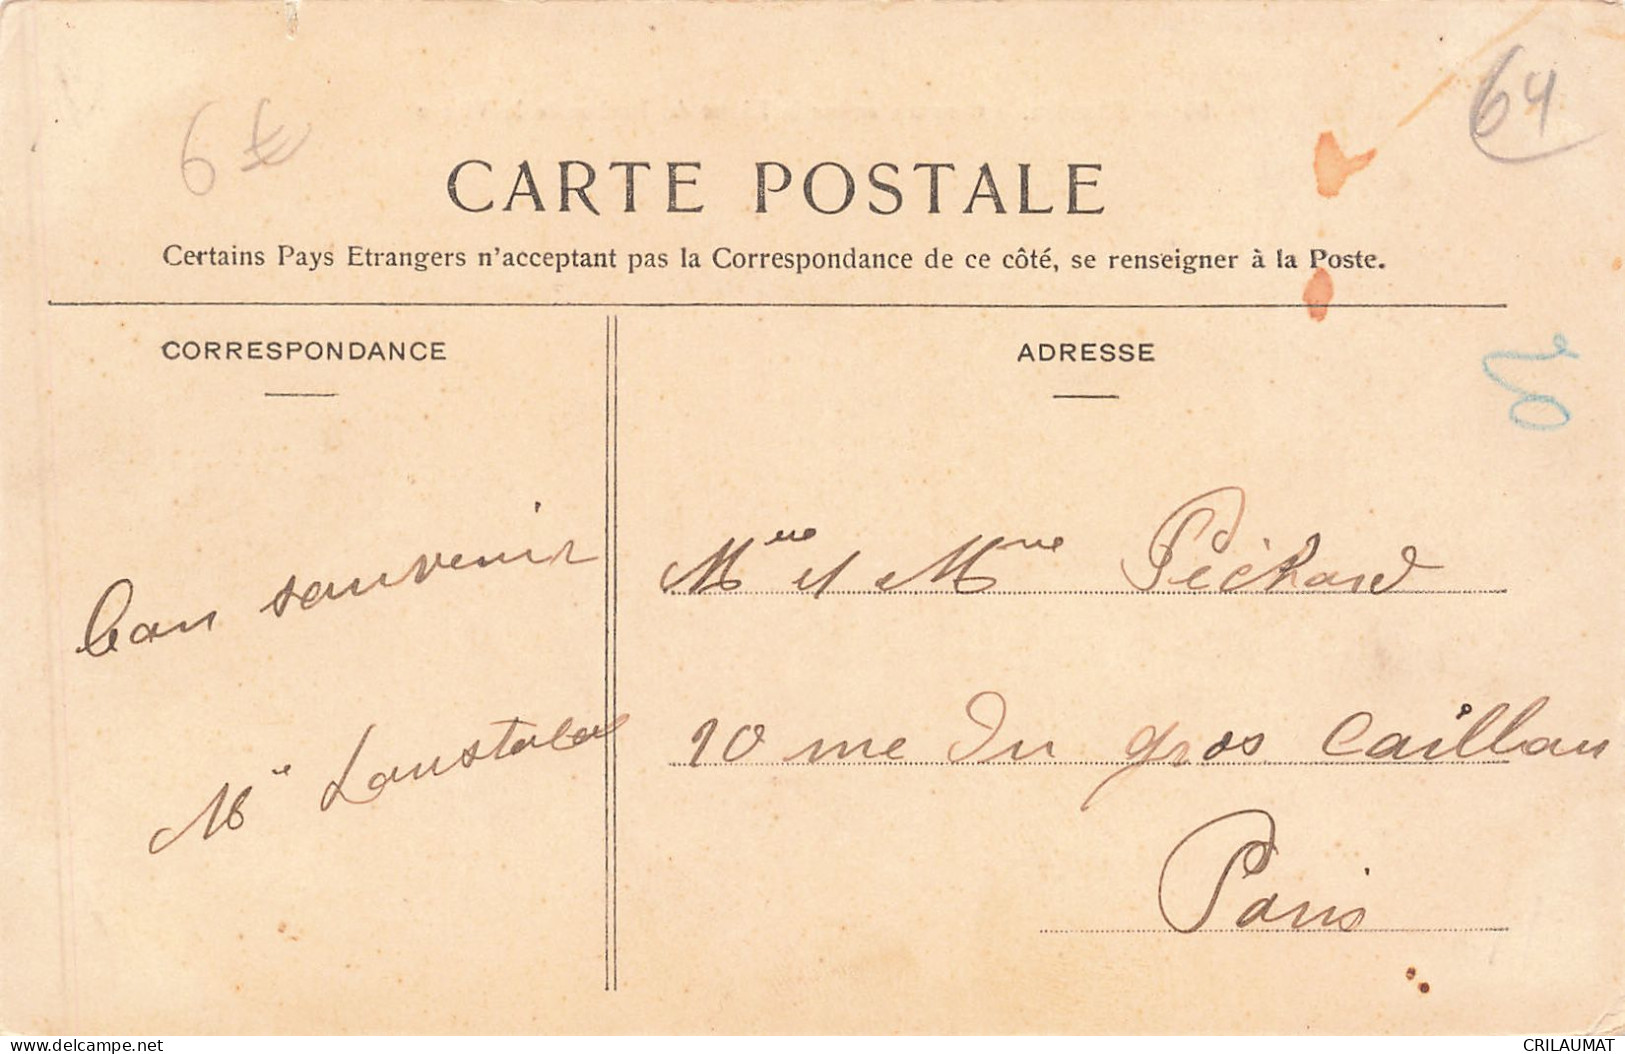 6 €
64
CARTE POSTALE
Certains Pays Etrangers n'acceptant pas la Correspondance de ce côté, se renseigner à la Poste.
CORRESPONDANCE
ADRESSE
20
bon souvenir
Mlle et Mme Péchard
10 rue du gros Caillou
Paris
https://www.delcampe.net
CRILAUMAT